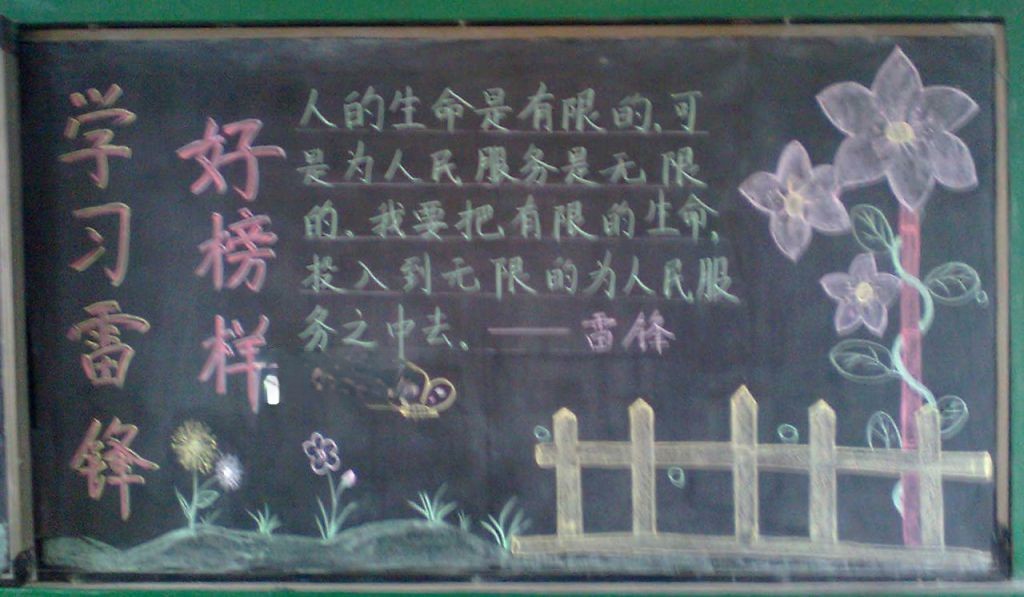 学习雷锋
好榜样
人的生命是有限的,可
是为人民服务是无限
的,我要把有限的生命,
投入到无限的为人民服
务之中去。——雷锋